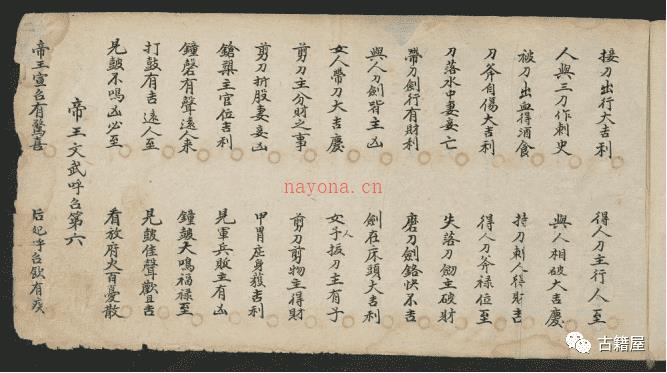 接刀出行大吉利　得人刀主行人至
人與三刀作刺史　與人相破大吉慶
被刀出血得酒食　持刀刺人得財吉
刀斧自傷大吉利　得人刀斧祿位至
刀落水中妻妾亡　失落刀劒主破財
帶刀劍行有財利　磨刀劍快不吉
與人刀劍皆主凶　劍在床頭大吉利
女人帶刀大吉慶　女子人振刀主有子
剪刀主分財之事　剪刀剪物主得財
剪刀折股妻妾凶　甲冑庇身獲吉利
鎗槊主官位吉利　見軍兵敗主有凶
鐘磬有聲遠人來　鐘皷大鳴福禄至
打皷有吉遠人至　見皷佳聲歡且吉
見皷不鳴凶必至　看放府火百憂散
帝王文武呼召第六
帝王宣召有驚喜　后妃呼召飲有疾
nayona.cn
古籍屋